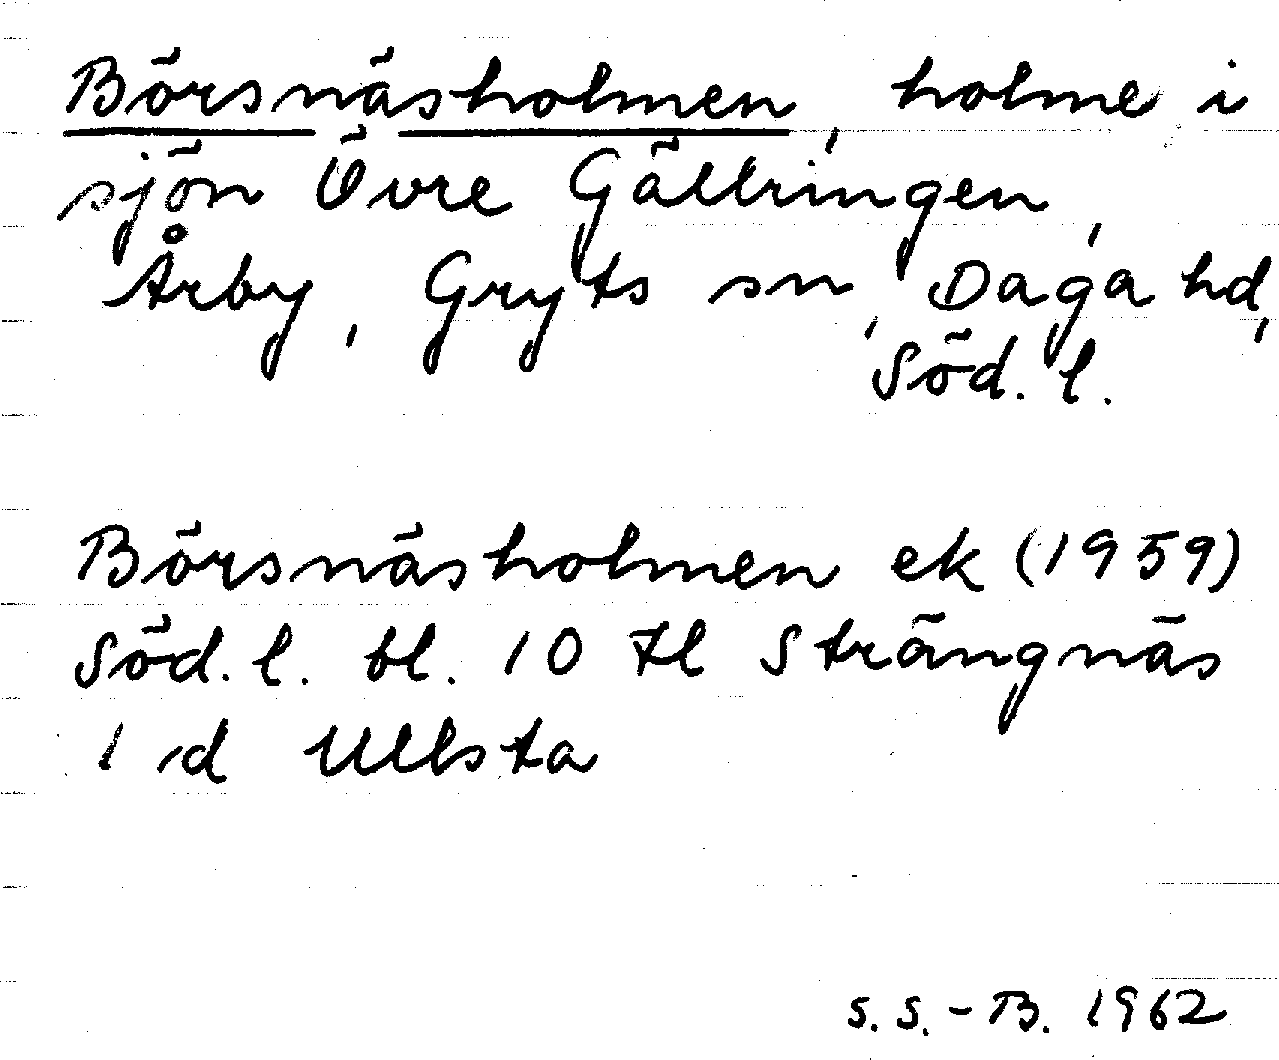 Börsnäsholmen, holme i
sjön Övre Gällringen,
Årby, Gryts sn, Daga hd,
Söd. l.
Börsnäsholmen ek (1959)
Söd. l. bl. 10 tl Strängnäs
1 d Ullsta
S. S.-B. 1962